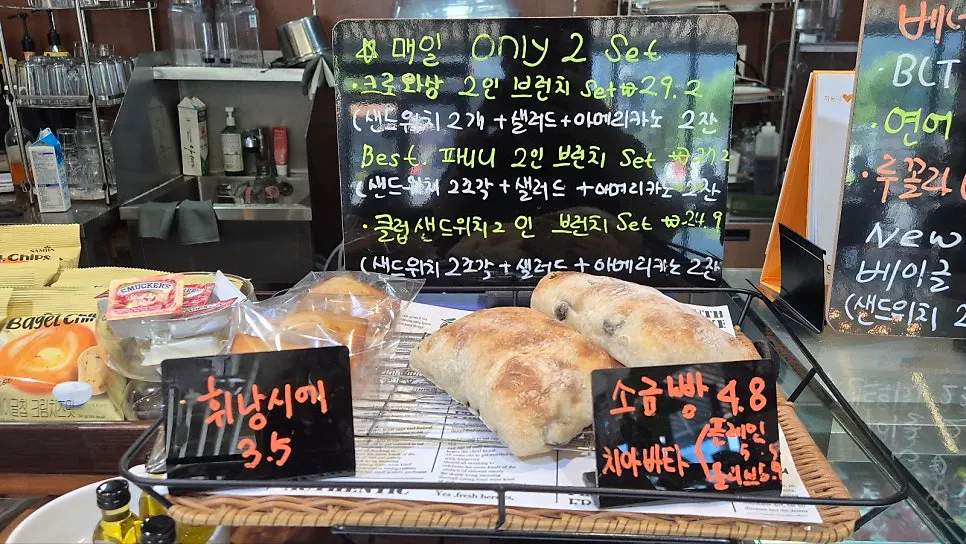 매일 Only 2 Set
· 크로와상 2인 브런치 Set ₩29.2
(샌드위치 2개 + 샐러드 + 아메리카노 2잔
Best. 파니니 2인 브런치 Set
(샌드위치 2조각 + 샐러드 + 아메리카노 2잔
· 클럽샌드위치 2인 브런치 Set ₩24.9
(샌드위치 2조각 + 샐러드 + 아메리카노 2잔
· BLT
· 연어
· 루꼴라
New
베이글
(샌드위치 2
SAMJIN
Chips
Bagel Chip
크림치즈맛
SMUCKER'S
휘낭시에
3.5
소금빵 4.8
치아바타 (플레인
올리브
AUTHENTIC
Yes fresh